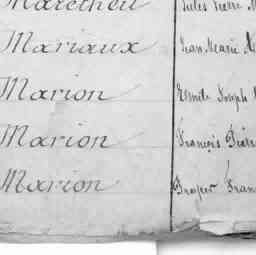 Jules Pierre
Mariaux Jean Marie
Marion Emile Joseph
Marion François
Marion Prosper Fran